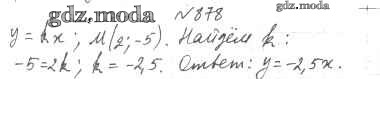 gdz.moda №878 gdz.moda
y = kx; M(2; -5). Найдём k:
-5=2k; k = -2,5. Ответ: y=-2,5x.